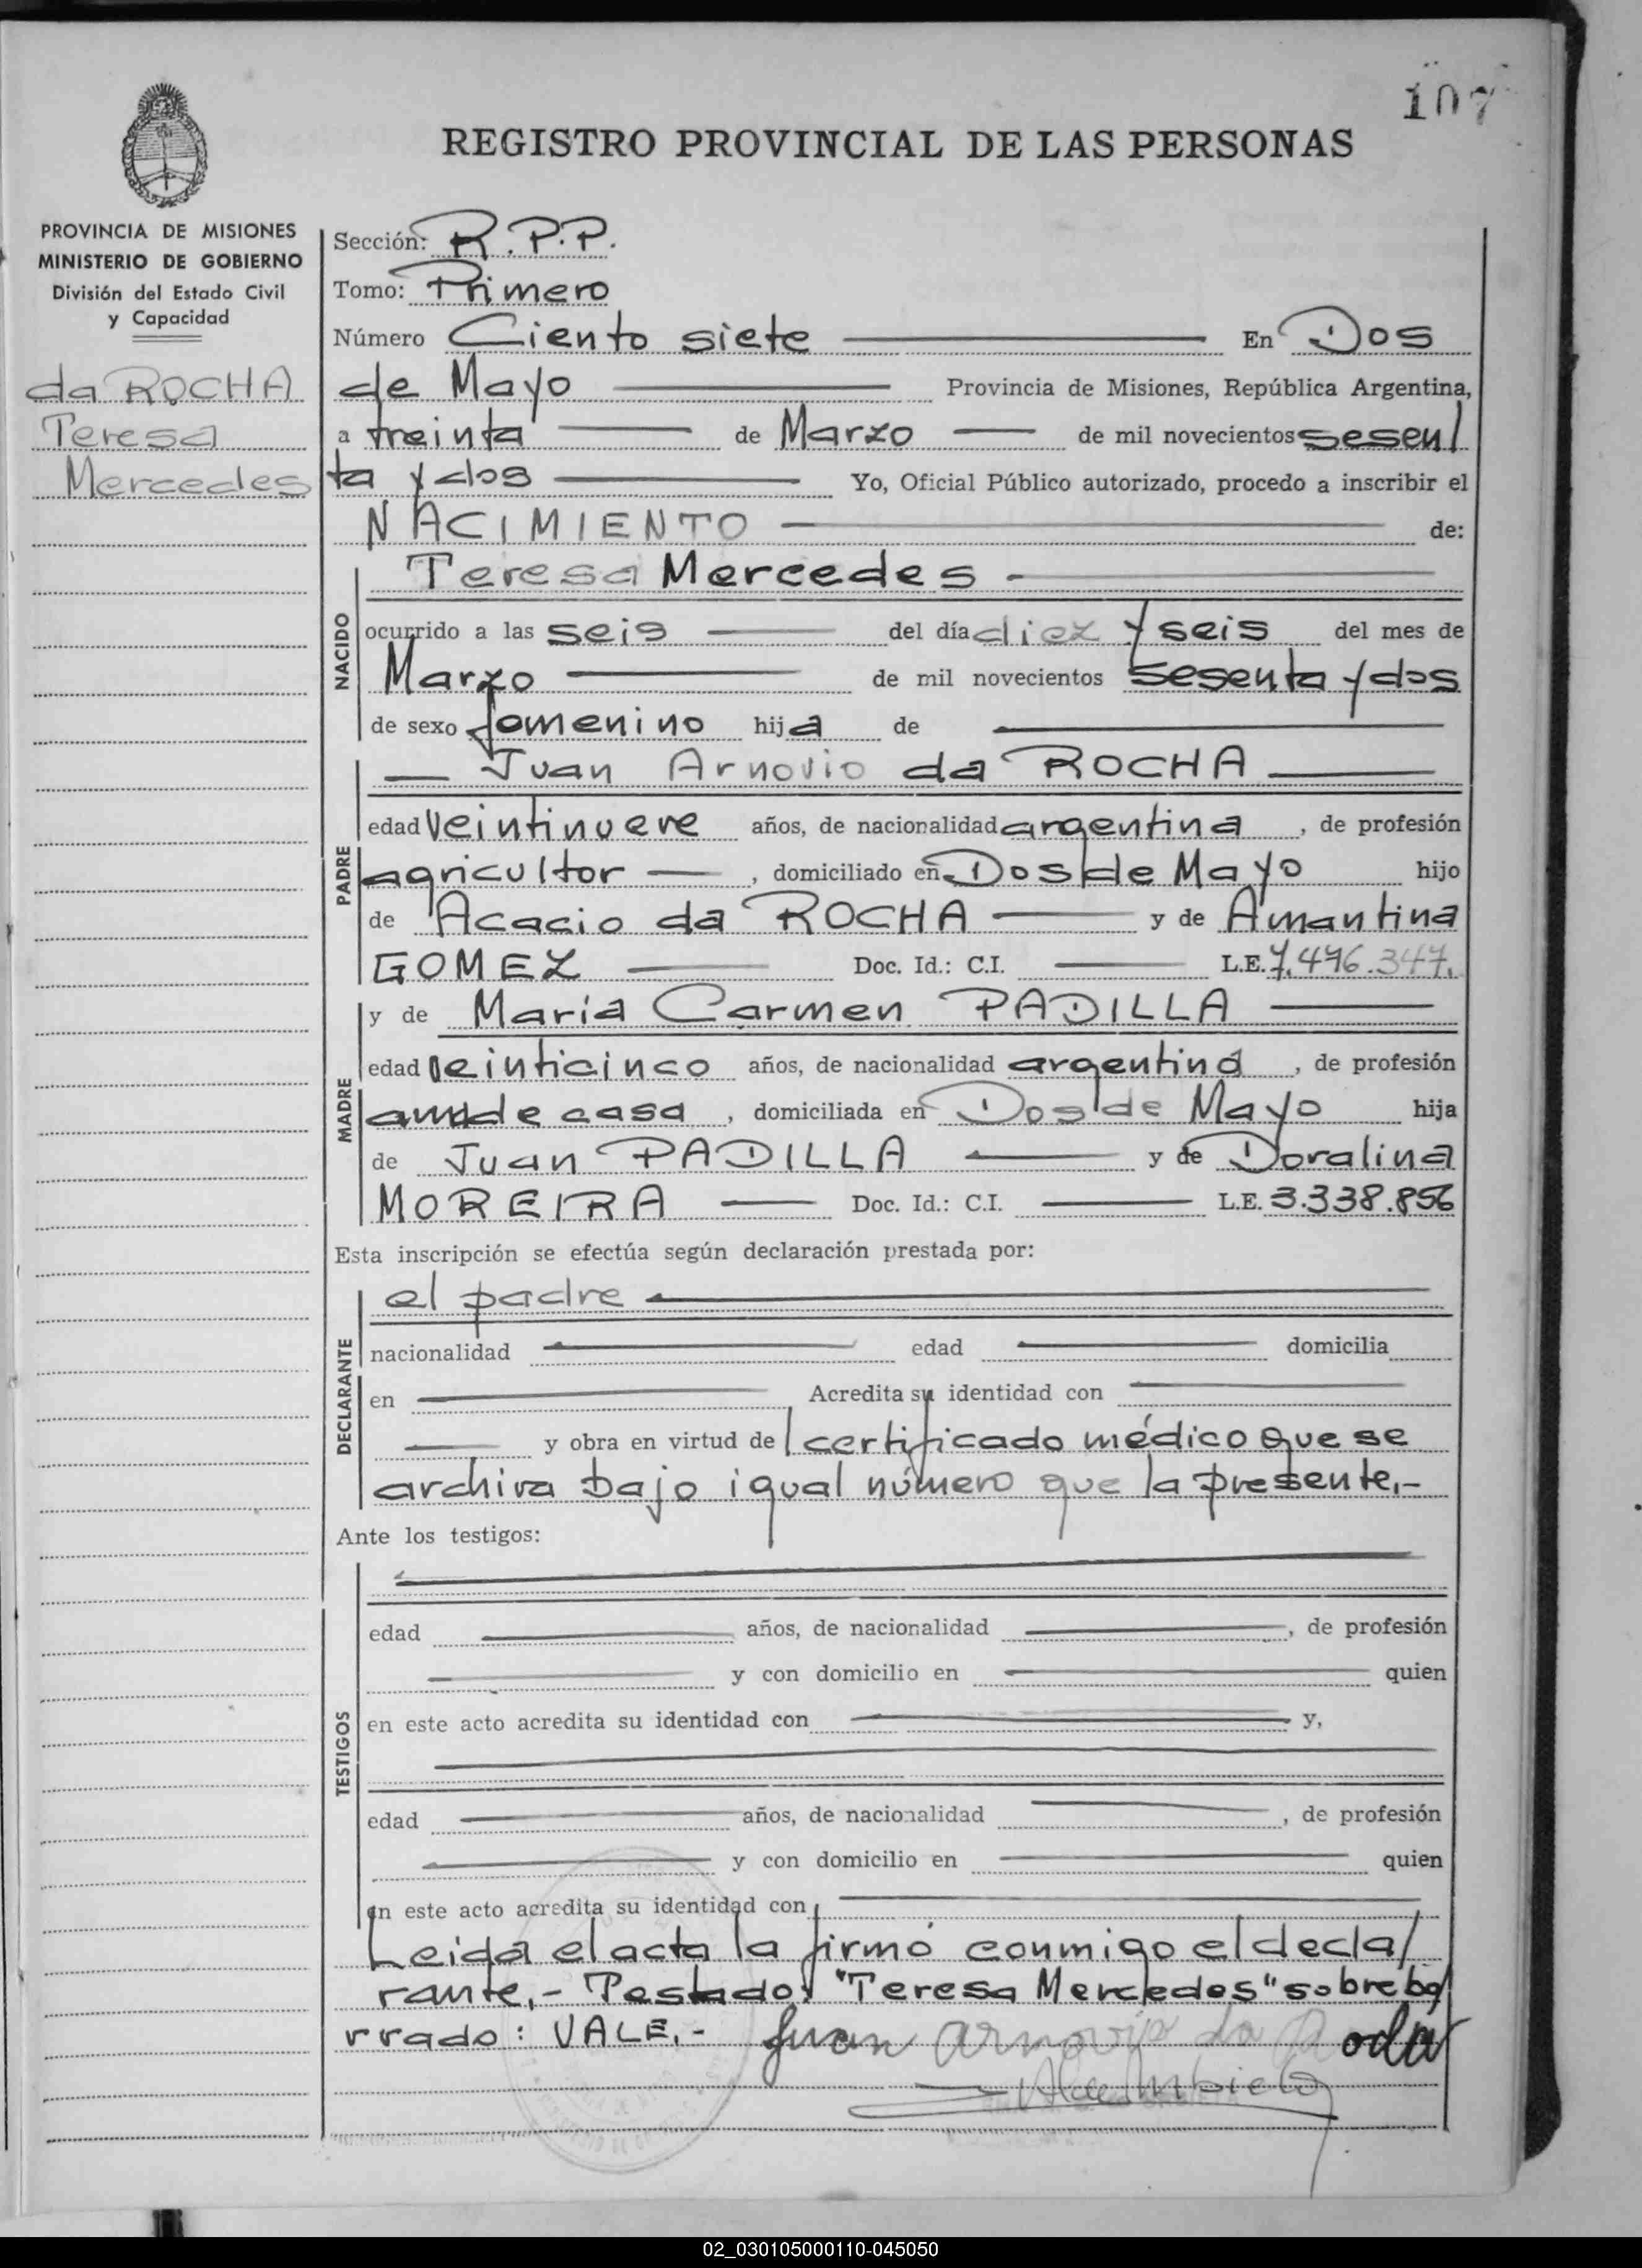 107
REGISTRO PROVINCIAL DE LAS PERSONAS
PROVINCIA DE MISIONES
MINISTERIO DE GOBIERNO
División del Estado Civil
y Capacidad
da ROCHA
Teresa
Mercedes
Sección: R.P.P.
Tomo: Primero
Número Ciento siete En Dos
de Mayo Provincia de Misiones, República Argentina,
a treinta de Marzo de mil novecientos sesen/
ta y dos Yo, Oficial Público autorizado, procedo a inscribir el
NACIMIENTO de:
NACIDO
Teresa Mercedes -
ocurrido a las seis del día diez y seis del mes de
Marzo de mil novecientos sesenta y dos
de sexo femenino hija de
PADRE
Juan Arnovio da ROCHA
edad veintinueve años, de nacionalidad argentina, de profesión
agricultor, domiciliado en Dos de Mayo hijo
de Acacio da ROCHA y de Amantina
GOMEZ Doc. Id.: C.I. L.E. 7.496.347.
MADRE
y de Maria Carmen PADILLA
edad veinticinco años, de nacionalidad argentina, de profesión
ama de casa, domiciliada en Dos de Mayo hija
de Juan PADILLA y de Doralina
MOREIRA Doc. Id.: C.I. L.E. 3.338.856
Esta inscripción se efectúa según declaración prestada por:
DECLARANTE
el padre
nacionalidad edad domicilia
en Acredita su identidad con
y obra en virtud de certificado médico que se
archiva bajo igual número que la presente.-
Ante los testigos:
TESTIGOS
edad años, de nacionalidad , de profesión
y con domicilio en quien
en este acto acredita su identidad con y,
edad años, de nacionalidad , de profesión
y con domicilio en quien
en este acto acredita su identidad con
Leida el acta la firmó conmigo el decla/
rante.- Testado: "Teresa Mercedes" sobre bo/
rrado: VALE.- Juan Arnovio da
02_030105000110-045050